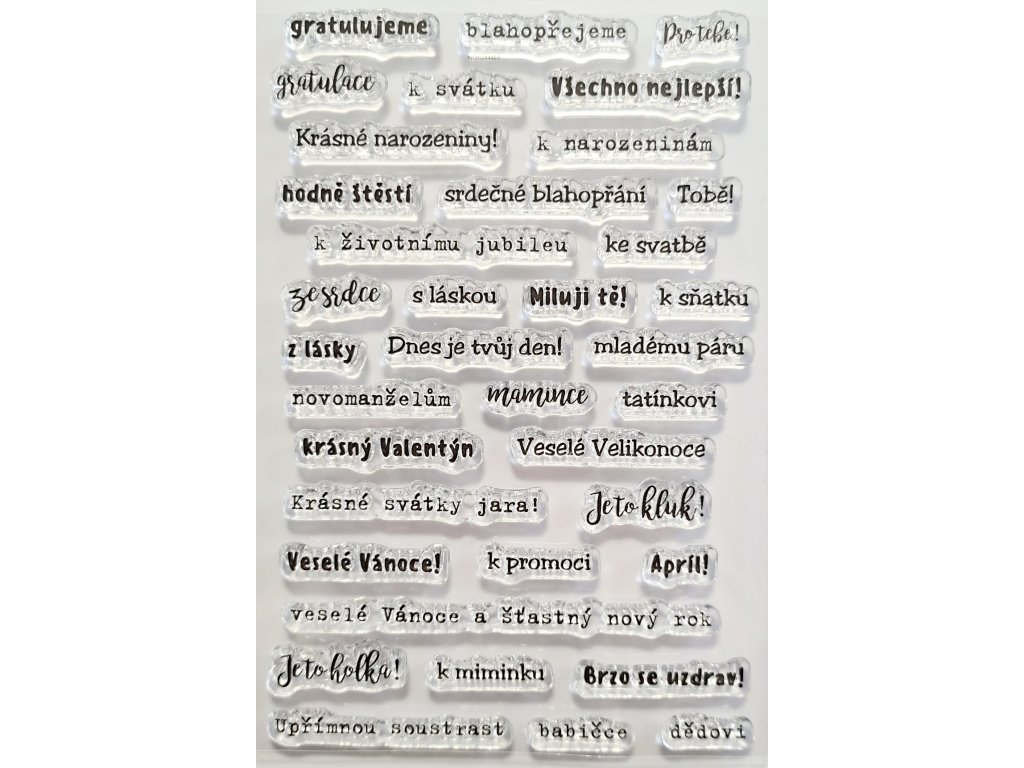 gratulujeme blahopřejeme Pro tebe!
gratulace k svátku Všechno nejlepší!
Krásné narozeniny! k narozeninám
hodně štěstí srdečné blahopřání Tobě!
k životnímu jubileu ke svatbě
ze srdce s láskou Miluji tě! k sňatku
z lásky Dnes je tvůj den! mladému páru
novomanželům mamince tatínkovi
krásný Valentýn Veselé Velikonoce
Krásné svátky jara! Je to kluk!
Veselé Vánoce! k promoci Apríl!
veselé Vánoce a šťastný nový rok
Je to holka! k miminku Brzo se uzdrav!
Upřímnou soustrast babičce dědovi